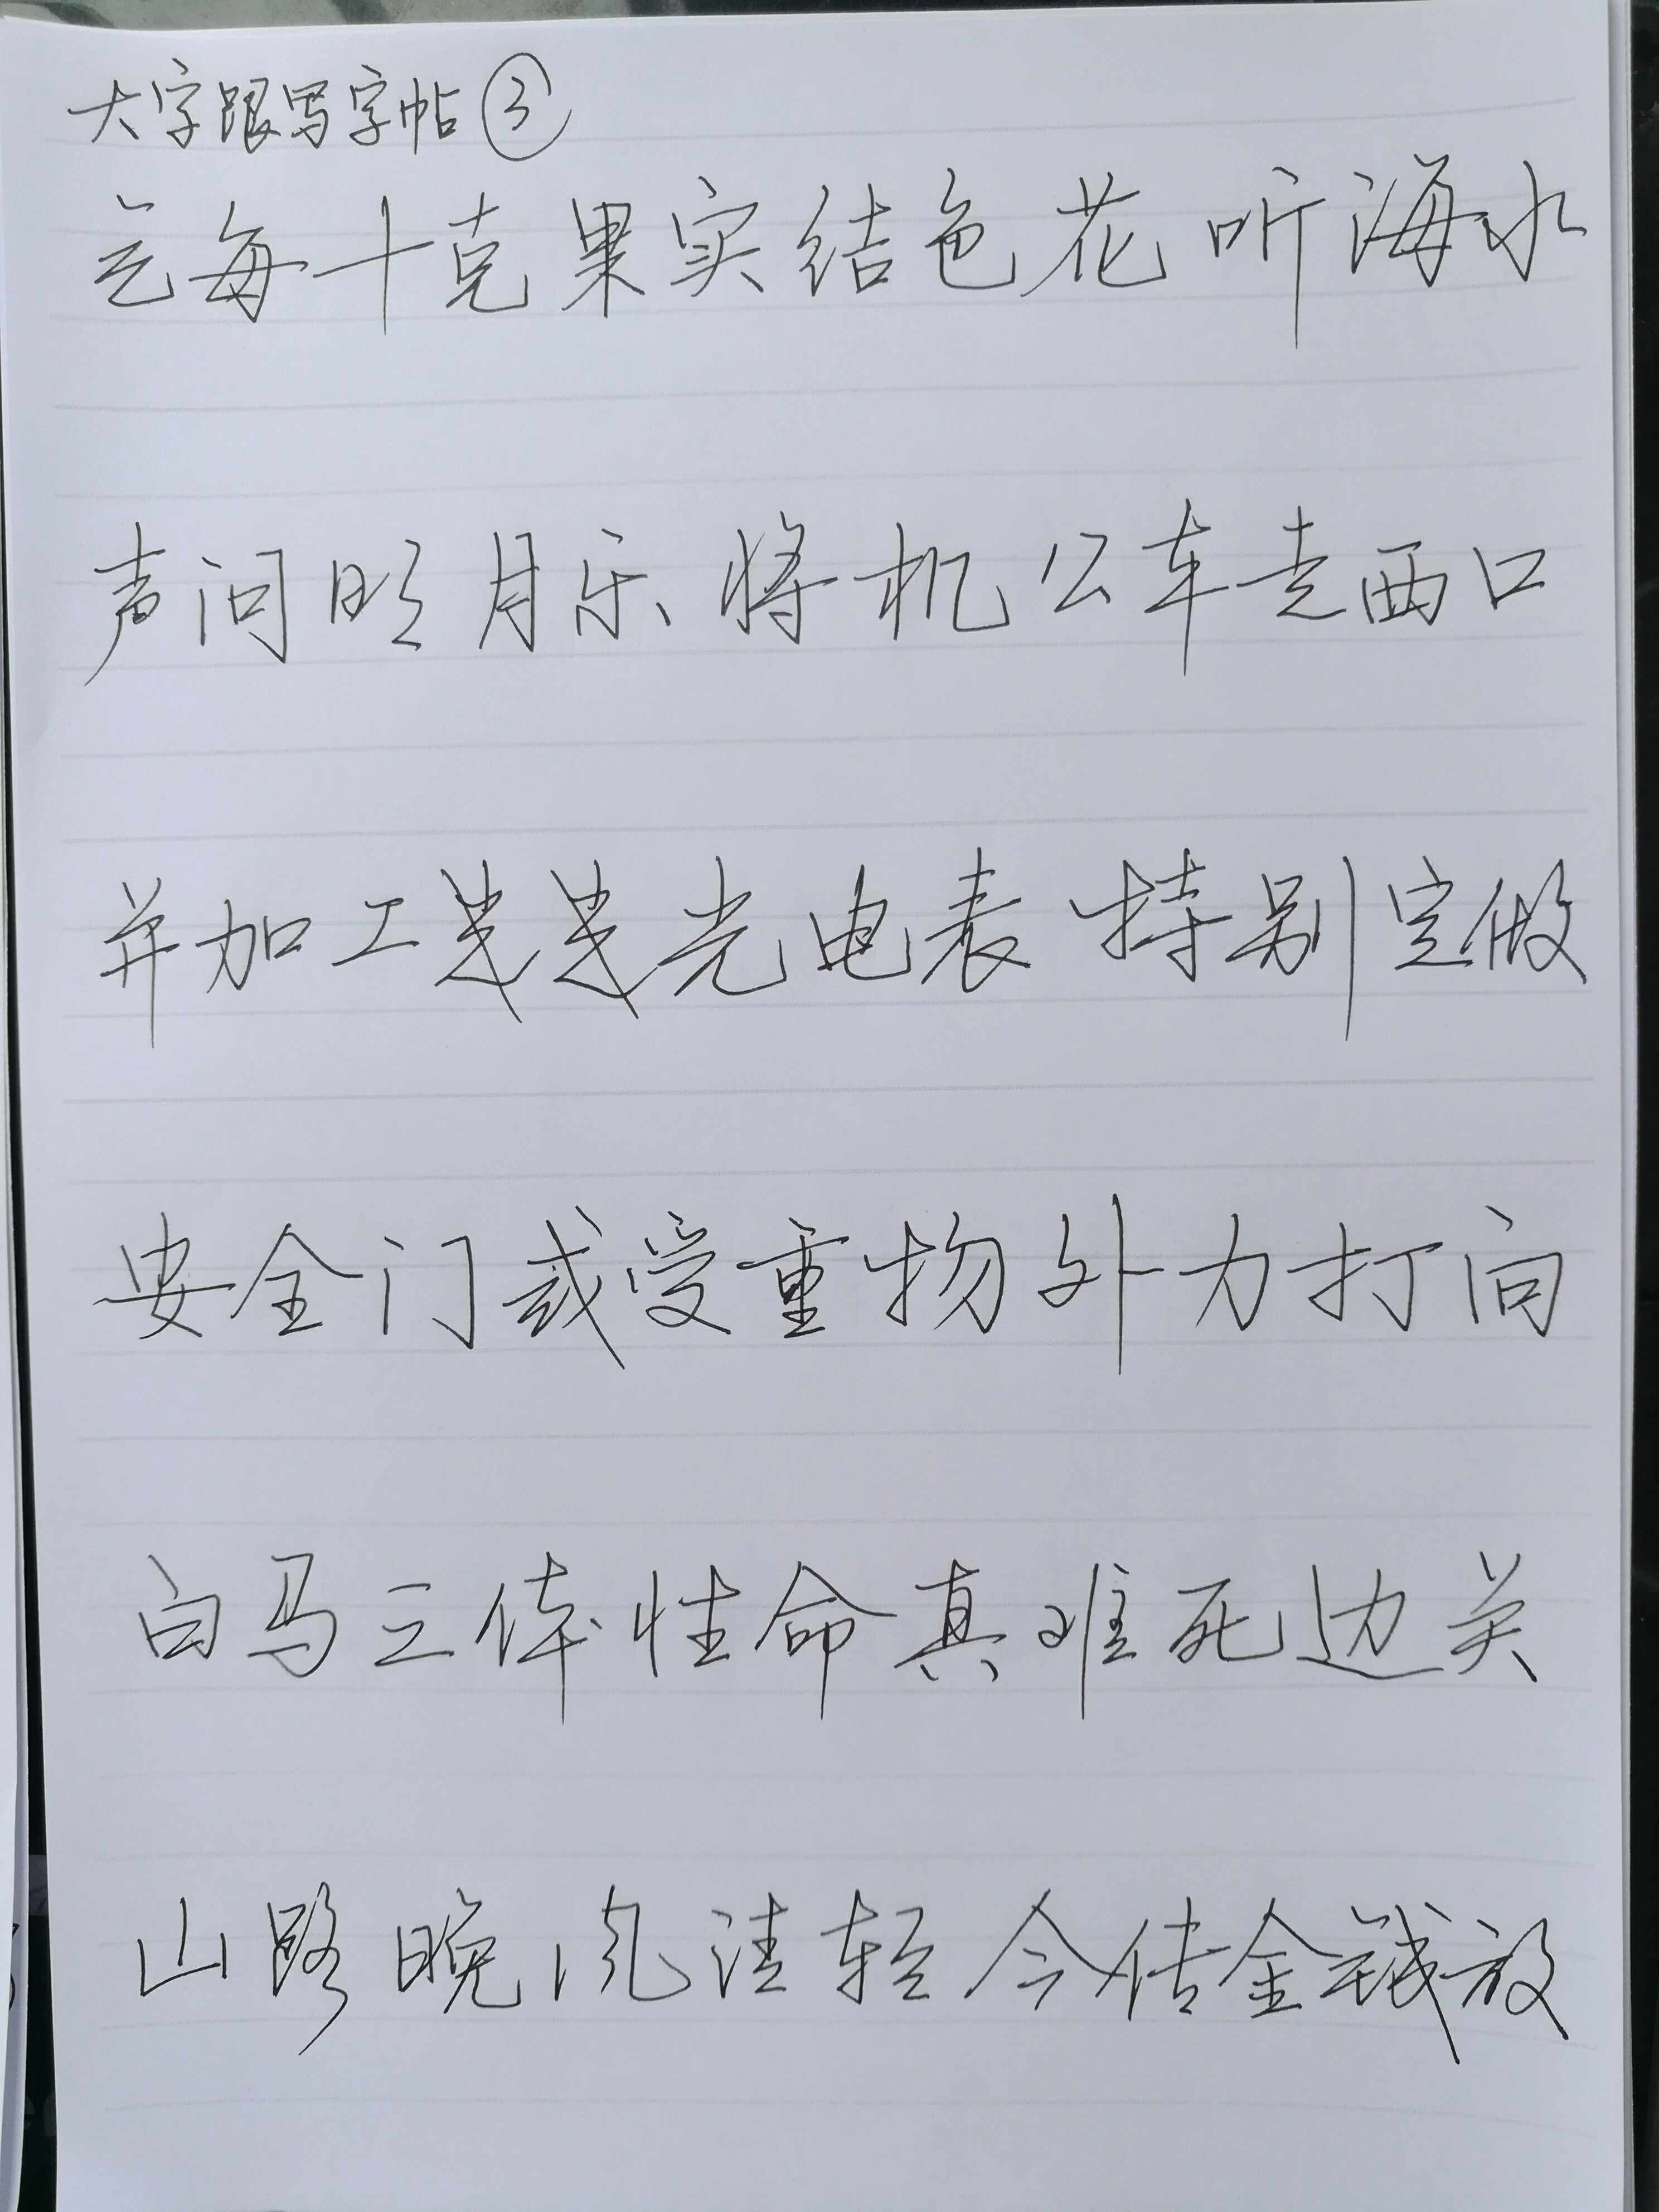 大字跟写字帖③
每十克果实结色花听海水
声问明月乐将机公车走西口
并加工光电表特别定做
安全门或受重物外力打向
白马三体性命真难死边关
山路晚风清轻今传金钱放